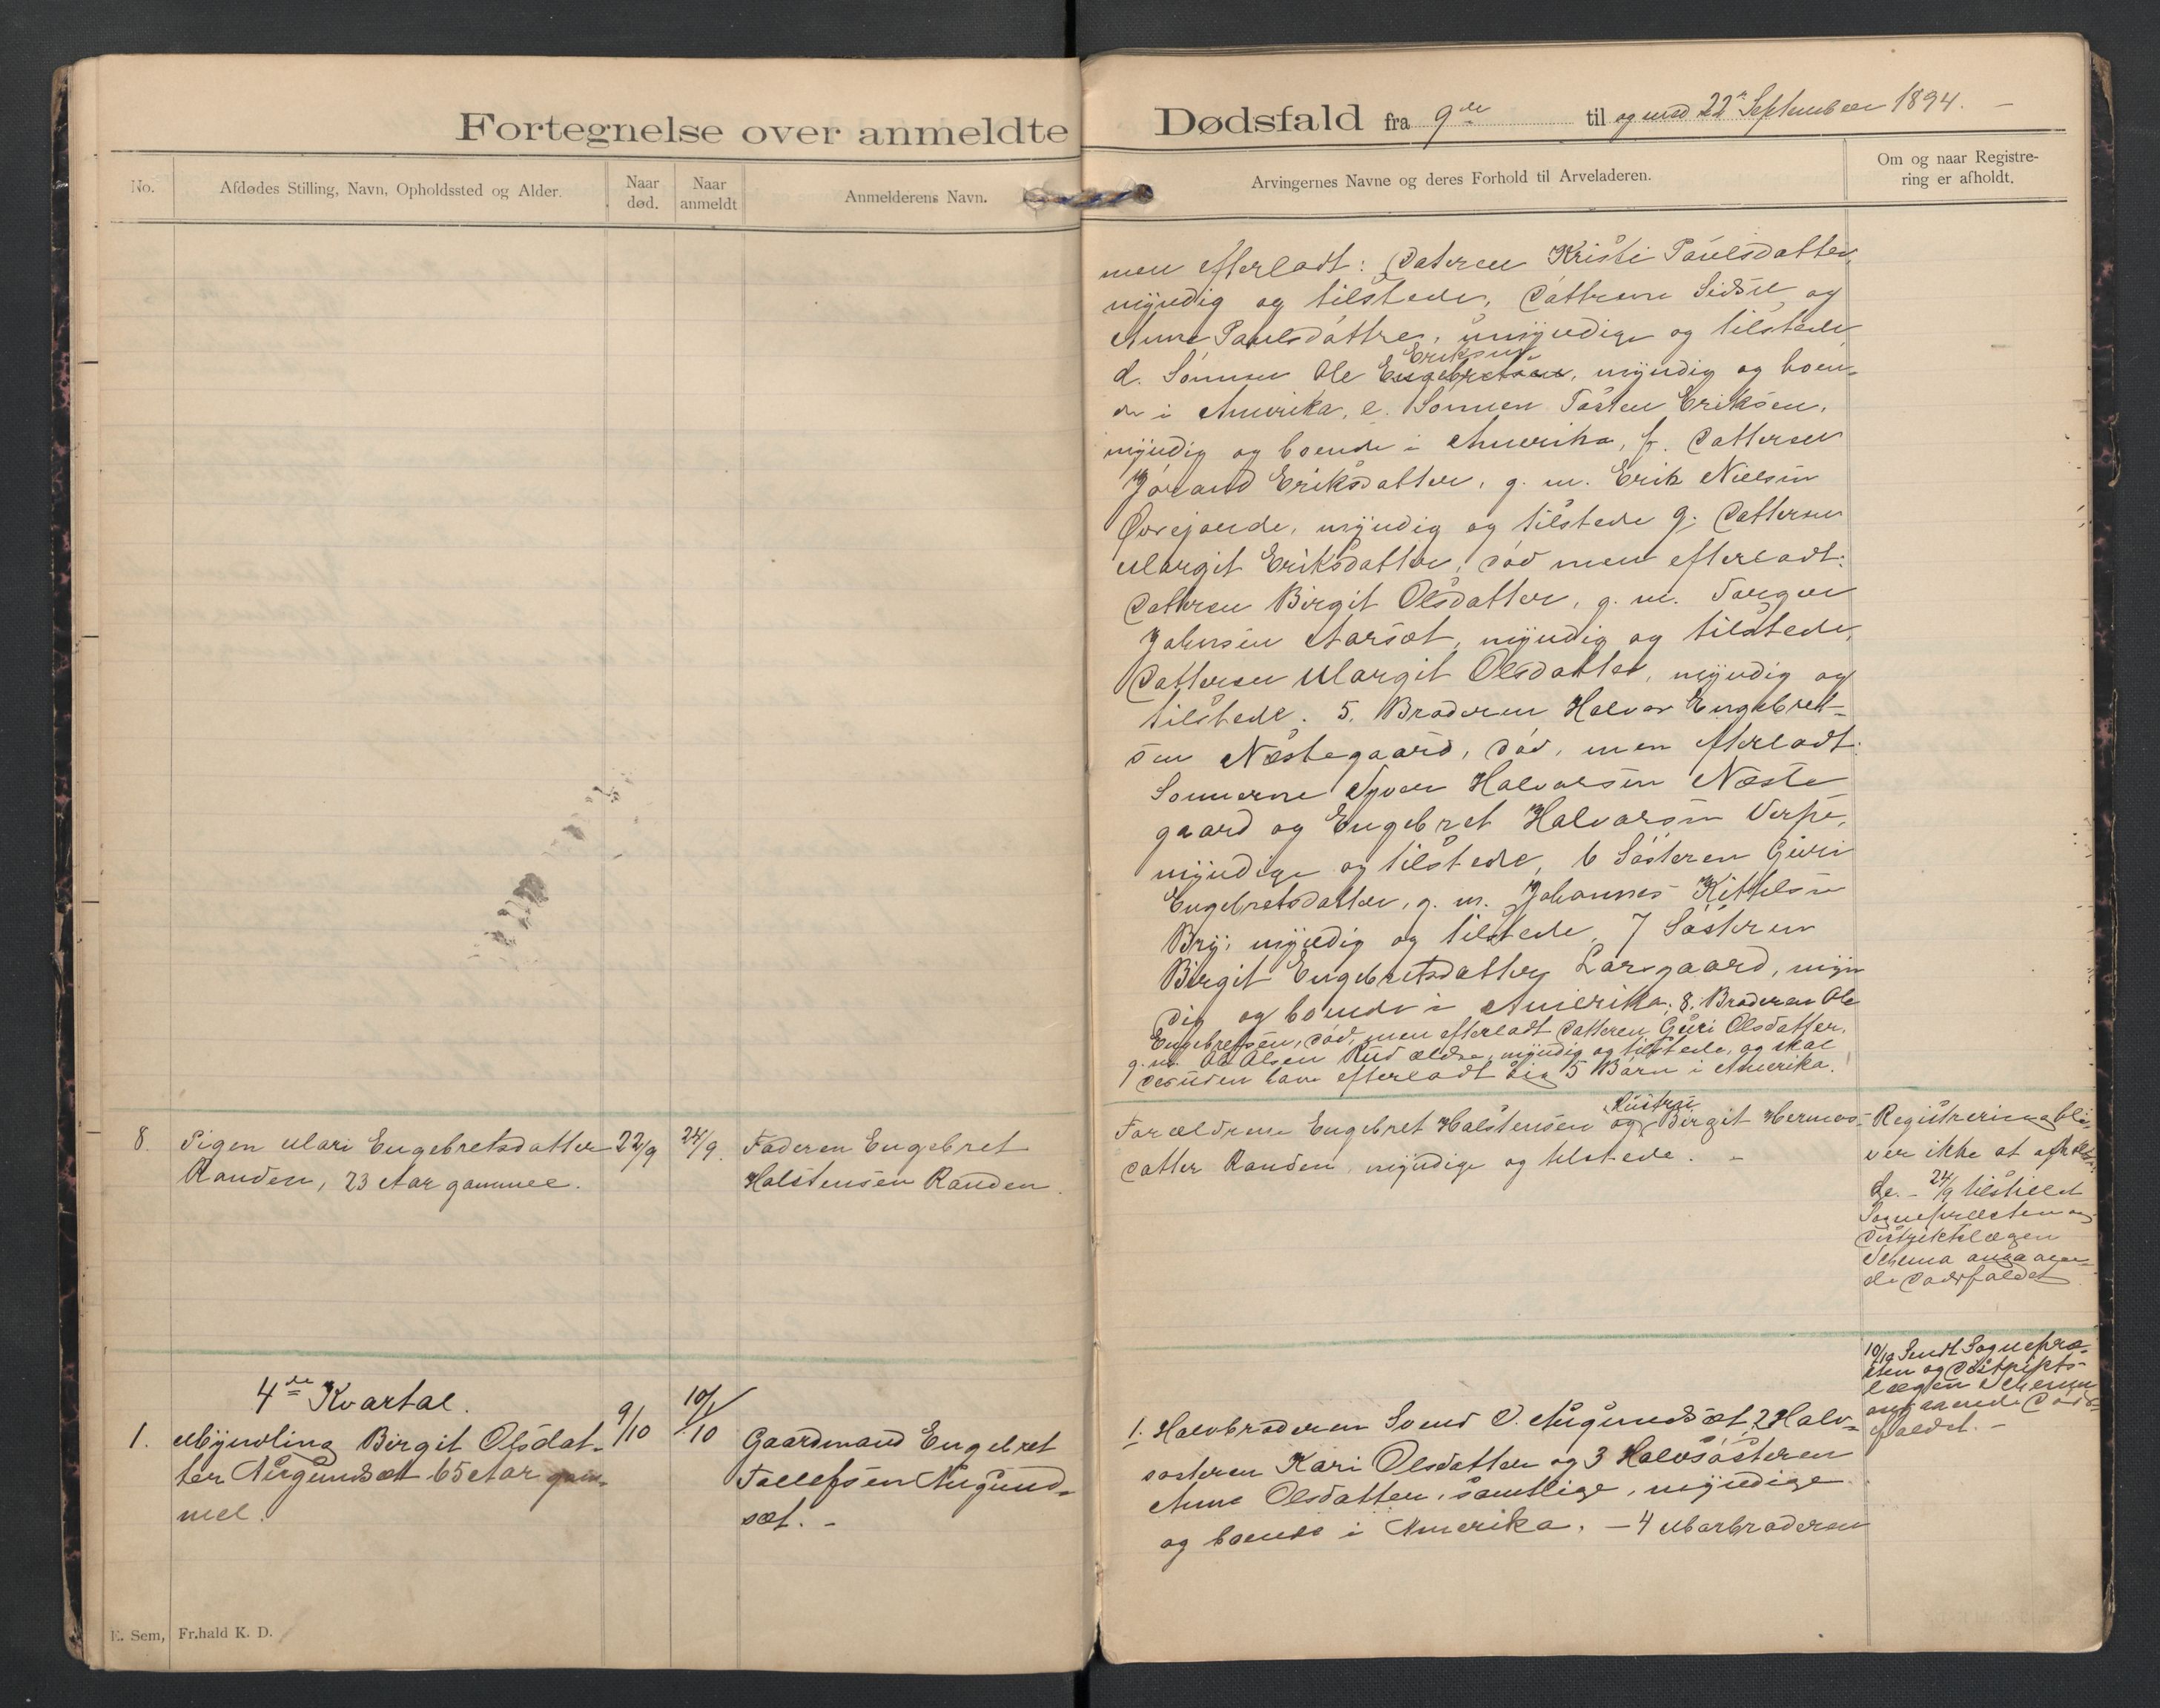 Fortegnelse over anmeldte Dødsfald fra 9de til og med 22de September 1894. –
No.
Afdødes Stilling, Navn, Opholdssted og Alder.
Naar død.
Naar anmeldt
Anmelderens Navn.
Arvingernes Navne og deres Forhold til Arveladeren.
Om og naar Registre-
ring er afholdt.
men efterladt: Datteren Kristi Paulsdatter,
myndig og tilstede, Døttrene Sidsel og
Anne Paulsdøttre, umyndige og tilstede
d. Sønnen Ole Engebretsen Eriksen, myndig og boen-
de i Amerika, e. Sønnen Tosten Eriksen,
myndig og boende i Amerika, f. Datteren
Jørand Eriksdatter, g. m. Erik Nielsen
myndig og tilstede g. Datteren
Margit Eriksdatter, død men efterladt:
Datteren Birgit Olsdatter, g. m. Torger
Johnsen Aarset, myndig og tilstede,
Datteren Margit Olsdatter, myndig og
tilstede. 5. Broderen Halvor Engebret-
sen Næstegaard, død, men efterladt:
Sønnerne Syver Halvorsen Næste
gaard og Engebret Halvorsen Verpe,
myndige og tilstede, 6 Søsteren Guri
Engebretsdatter, g. m. Johannes Kittelsen
Bry, myndig og tilstede, 7 Søsteren
Birgit Engebretsdatter Larsgaard, myn
dig og boende i Amerika. 8. Broderen Ole
Engebretsen, død, men efterladt Datteren Guri Olsdatter,
g. m. Ole Olsen Rud ældre, myndig og tilstede, og skal
desuden have efterladt sig 5 Børn i Amerika.
8. Pigen Mari Engebretsdatter
Randen, 23 Aar gammel.
22/9
24/9.
Faderen Engebret
Halstensen Randen.
Forældrene Engebret Halstensen og Hustru Birgit Hermos-
datter Randen, myndige og tilstede. –
Registrering bli-
ver ikke at afhol-
de. – 24/9 tilstillet
Sognepræsten og
Distriktslægen
Schema angaaen-
de Dødsfaldet
4de Kvartal.
1. Myndling Birgit Olsdat-
ter Augundsæt 65 Aar gam-
mel.
9/10
10/10
Gaardmand Engebret
Tollefsen Augund-
sæt. –
1. Halvbroderen Svend O. Augundsæt, 2 Halv-
søsteren Kari Olsdatter og 3 Halvsøsteren
Anne Olsdatter, samtlige, myndige
og boende i Amerika. – 4 Morbroderen
10/10 Sendt Sognepræ-
sten og Distrikts-
lægen Schema
angaaende Døds-
faldet. –
E. Sem, Fr.hald K. D.